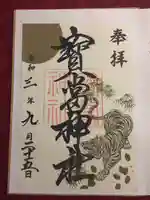 奉拝
寳當神社
令和三年九月二十五日